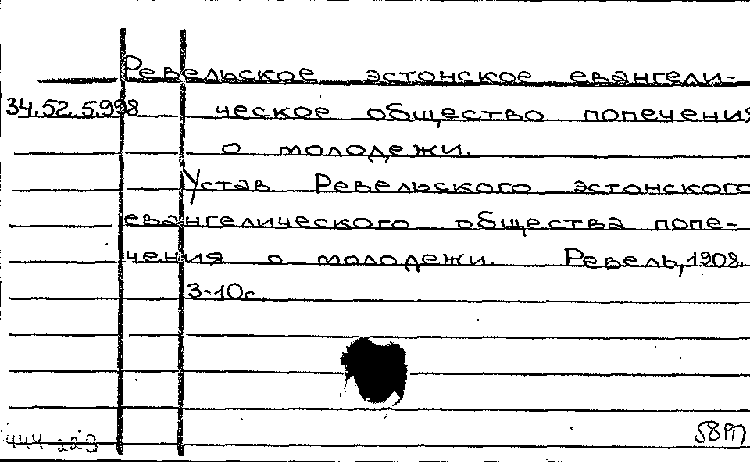 Ревельское эстонское евангели-
34.52.5.998 ческое общество попечения
о молодежи.
Устав Ревельского эстонского
евангелического общества попе-
чения о молодежи. Ревель, 1908.
3-10с.